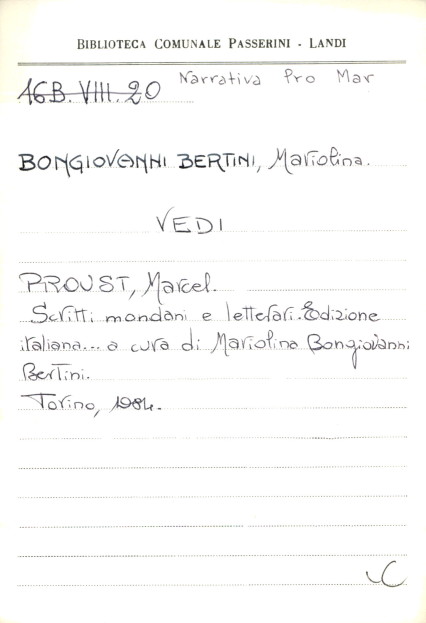 BIBLIOTECA COMUNALE PASSERINI - LANDI
16B.VIII.20 Narrativa Pro Mar
BONGIOVANNI BERTINI, Mariolina.
VEDI
PROUST, Marcel.
Scritti mondani e letterari. Edizione
italiana... a cura di Mariolina Bongiovanni
Bertini.
Torino, 1984.